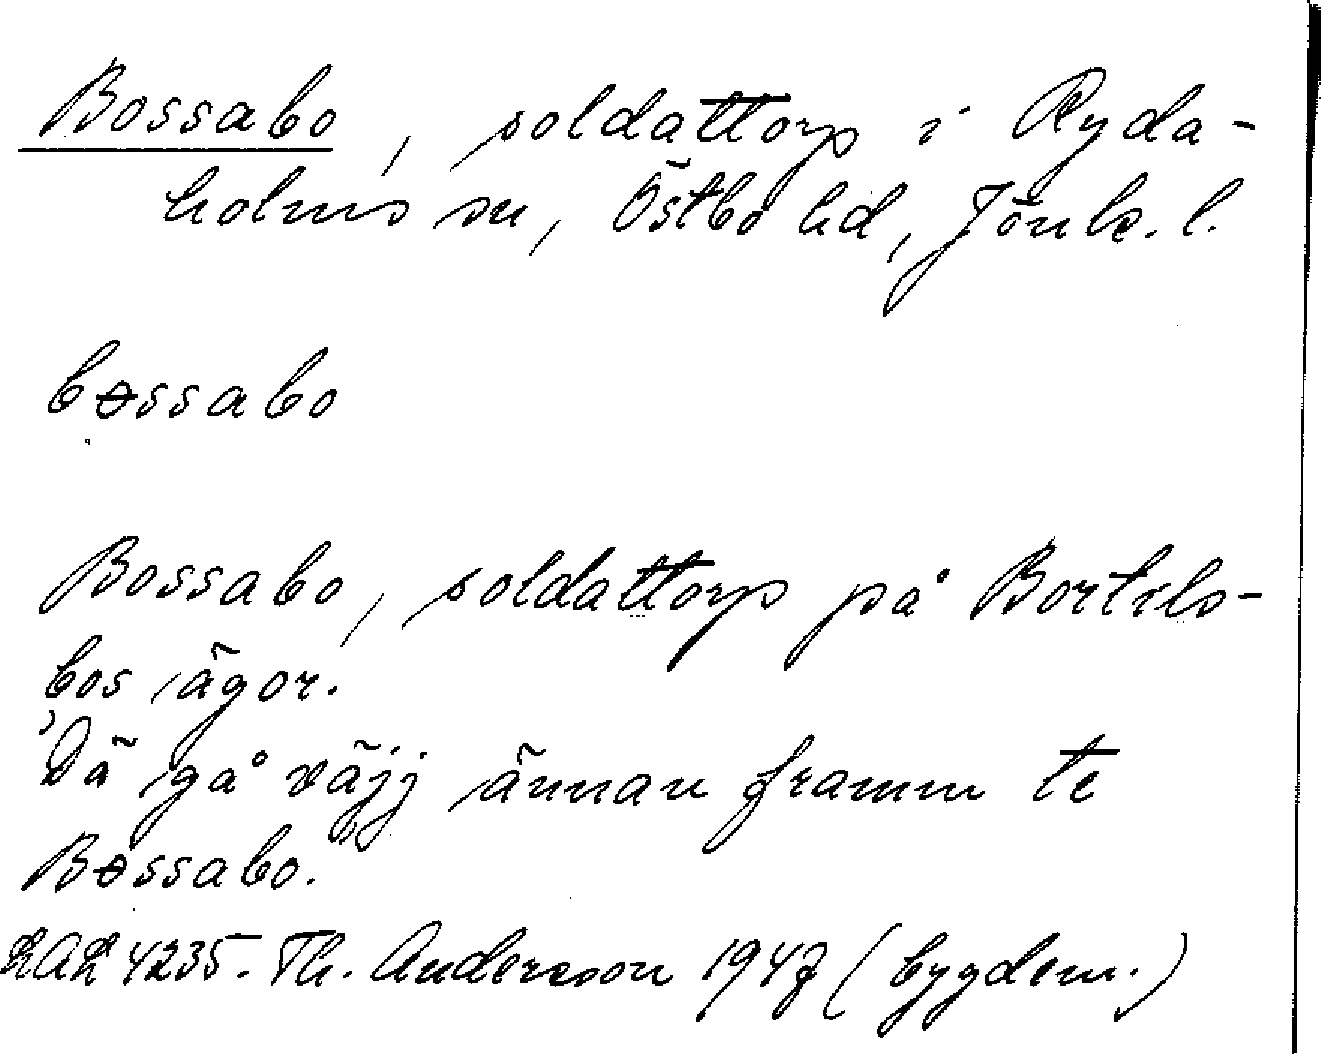 Bossabo, soldattorp i Ryda-
holms sn, Östbo hd, Jönk. l.
bɵssabo
Bossabo, soldattorp på Bortels-
bos ägor.
"Dä gå väjj ännan framm te
Bɵssabo."
LAL 4235. Th. Andersson 1947 (bygdem.)